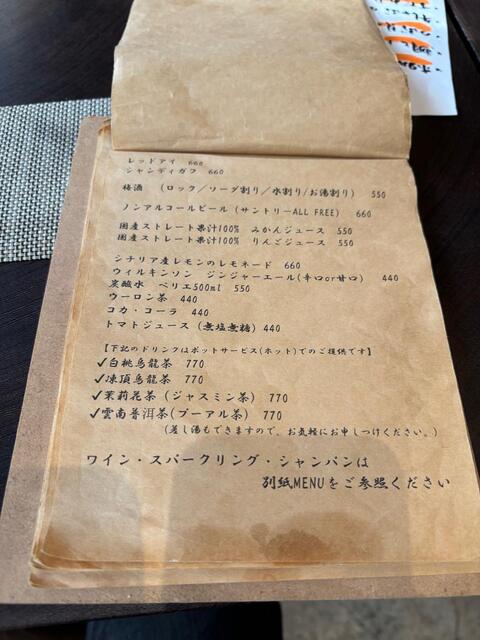 レッドアイ 660
シャンディガフ 660
梅酒 (ロック/ソーダ割り/水割り/お湯割り) 550
ノンアルコールビール (サントリーALL FREE) 660
国産ストレート果汁100% みかんジュース 550
国産ストレート果汁100% りんごジュース 550
シチリア産レモンのレモネード 660
ウィルキンソン ジンジャーエール(辛口or甘口) 440
炭酸水 ペリエ500ml 550
ウーロン茶 440
コカ・コーラ 440
トマトジュース (無塩無糖) 440
【下記のドリンクはポットサービス(ホット)でのご提供です】
✓白桃烏龍茶 770
✓凍頂烏龍茶 770
✓茉莉花茶 (ジャスミン茶) 770
✓雲南普洱茶(プーアル茶) 770
(差し湯もできますので、お気軽にお申しつけください。)
ワイン・スパークリング・シャンパンは
別紙MENUをご参照ください